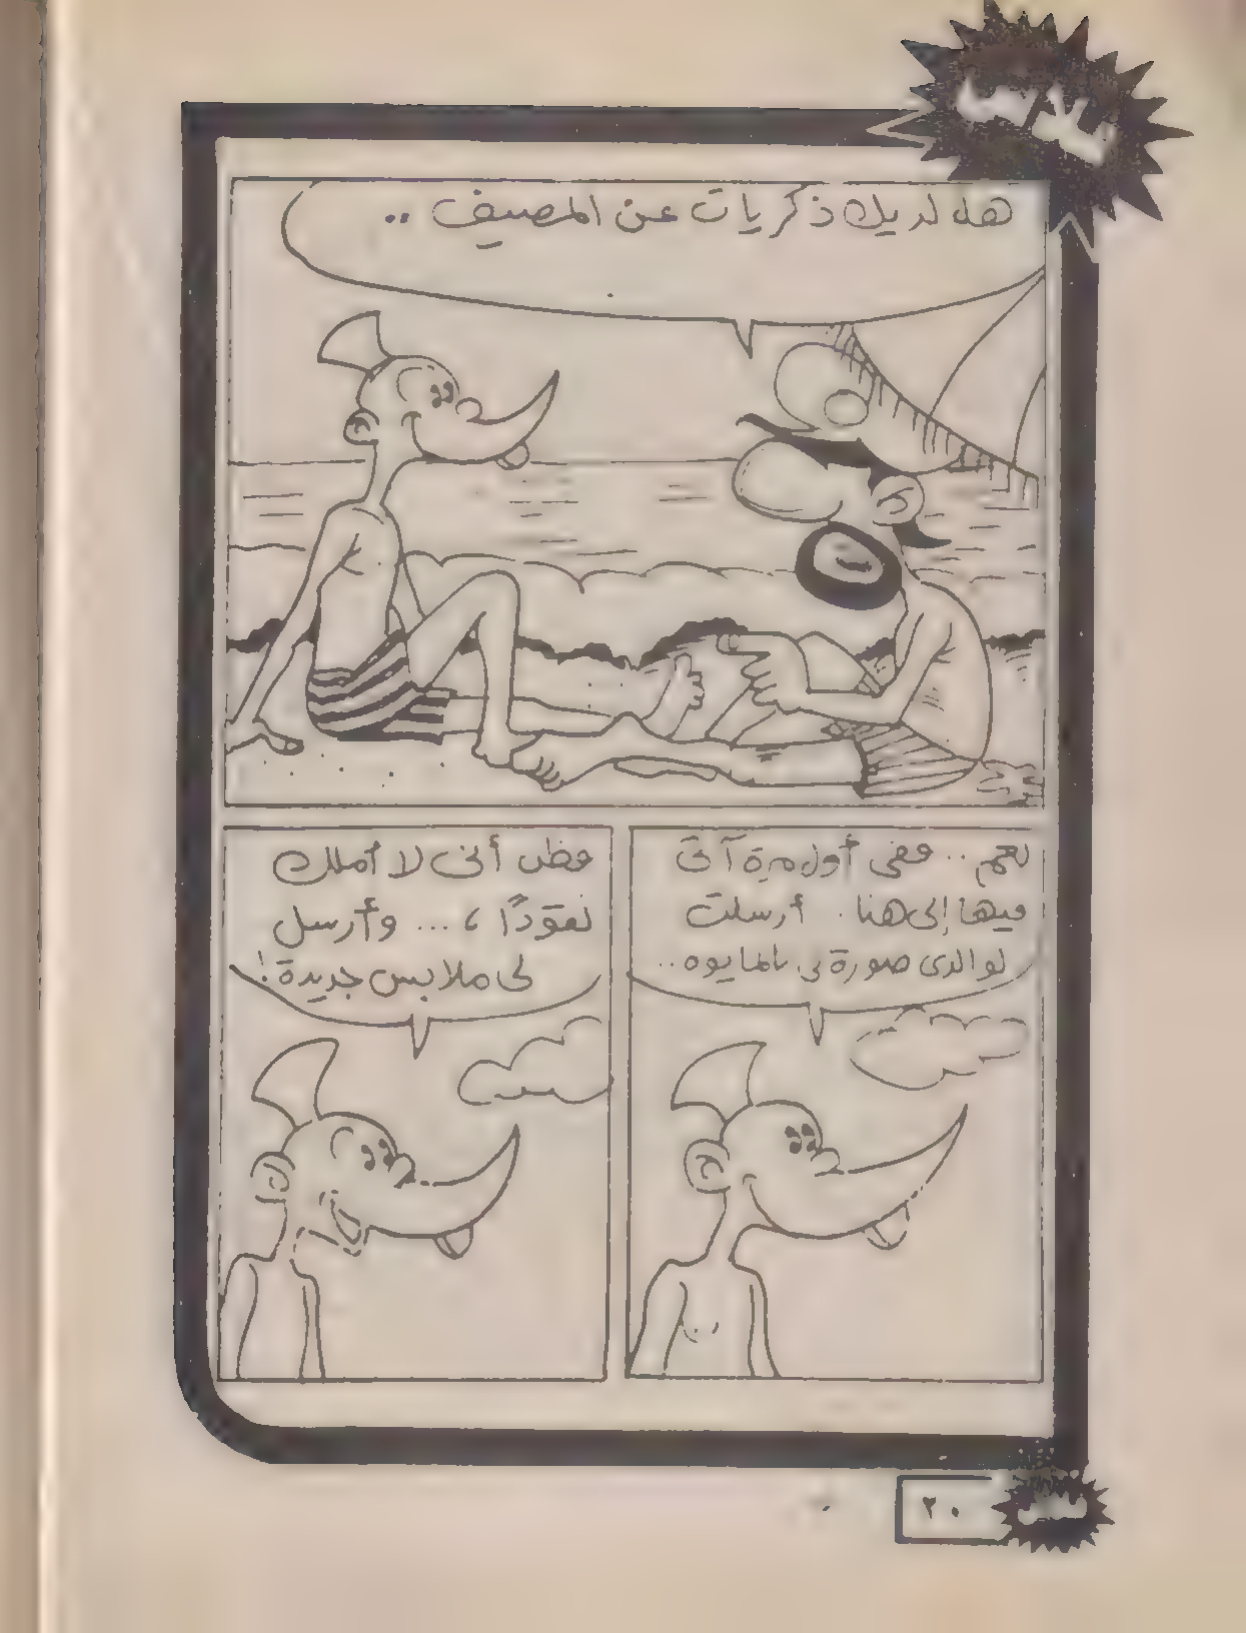 هل لديك ذكريات عن المصيف ..
نعم .. ففى أول مرة آتى
فيها إلى هنا . أرسلت
لوالدى صورة لى بالمايوه ..
فظن أنى لا أملك
نقودًا ، ... وأرسل
لى ملابس جديدة !
٢٠